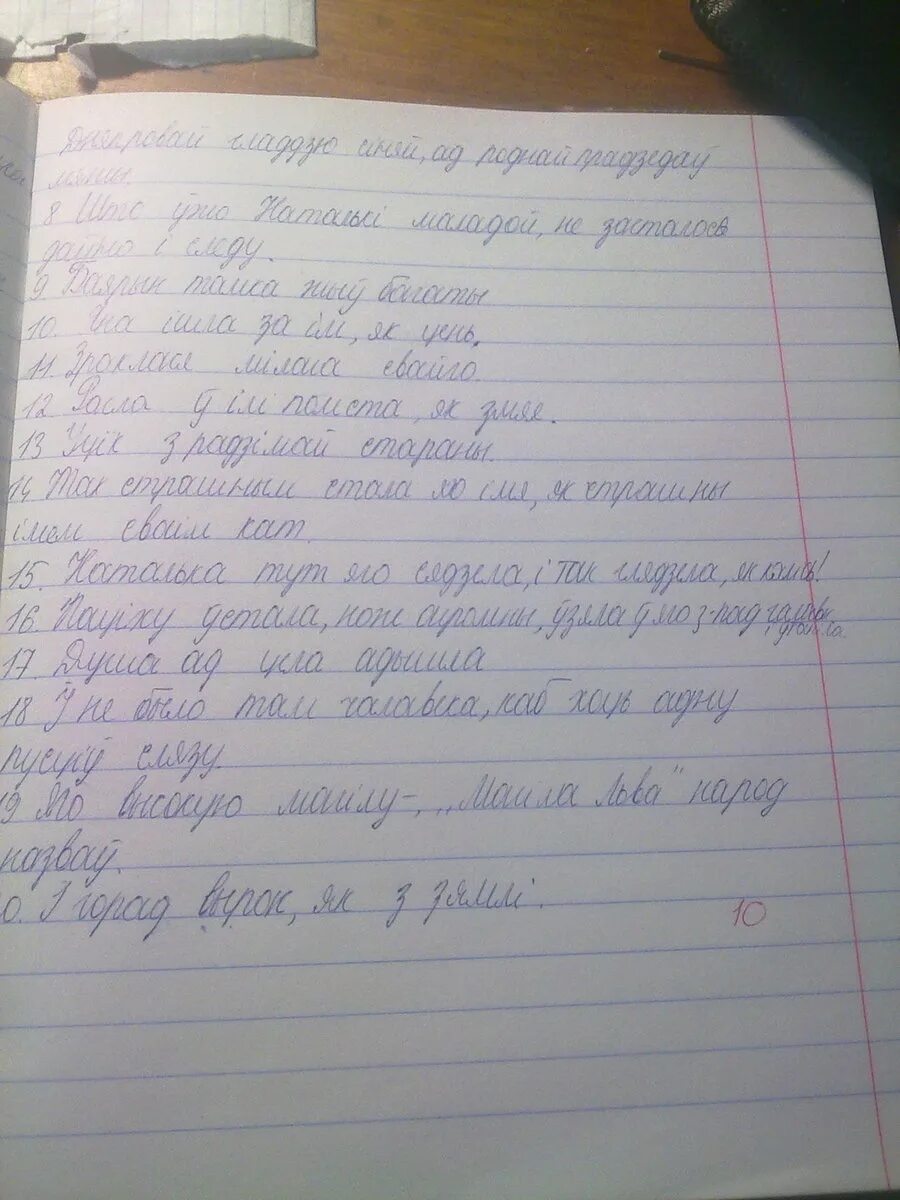 Дняпровай гладдзю сіняй, ад роднай прадзедаў
мяжы.
8 Што ўжо Наталькі маладой, не засталося
даўно і следу.
9. Баярын талка жыў багаты
10. Яна ішла за ім, як цень.
11. Зраклася мілага свайго.
12 Расла ў ім помста, як змяя.
13 Уцёк з радзімай стараны.
14 Так страшным стала яго імя, як страшны
імем сваім кат.
15. Наталька тут яго сядзела, і так глядзела, як
16. Паціху ўстала, нож агромны, ўзяла ў яго з-пад галавы
17 Душа ад цела адышла
18 І не было там чалавека, каб хоць адну
пусціў слязу.
19 Яго высокую магілу-, „Магіла Льва" народ
назваў.
0. І горад вырас, як з зямлі.
10